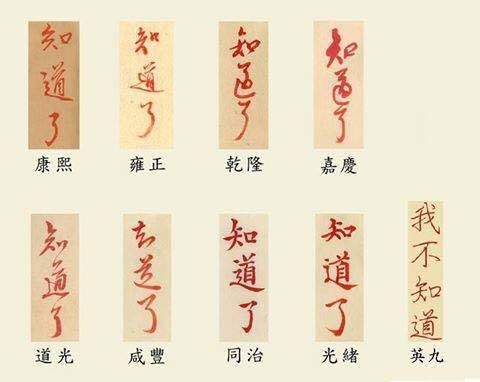 知道了
知道了
知道了
知道了
康熙
雍正
乾隆
嘉慶
知道了
知道了
知道了
知道了
我不知道
道光
咸豐
同治
光緒
英九